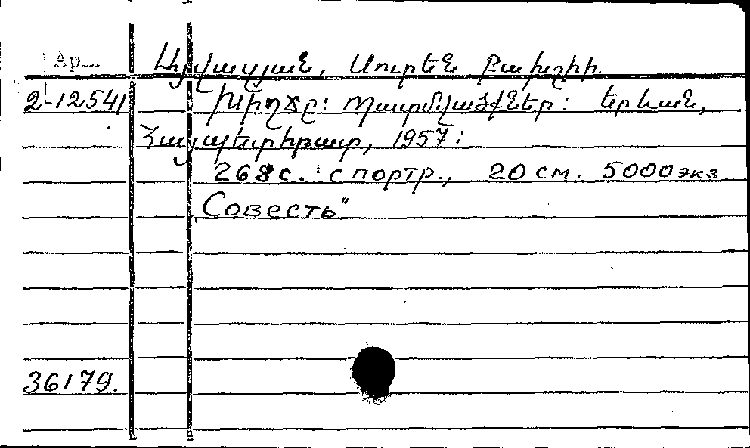 Ар
Այվազյան, Սուրեն Բախշիի
2-12541 Խիղճը: Պատմվածքներ: Երևան,
Հայպետհրատ, 1957:
268 с. с портр., 20 см. 5000 экз
„Совесть"
36179.